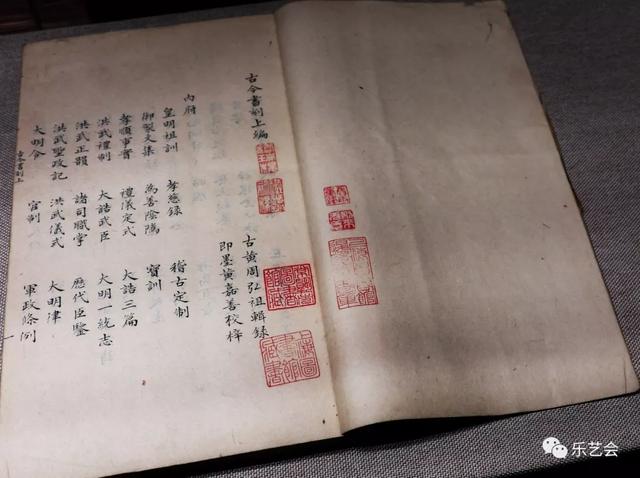 古今書刻上編
古黃周弘祖輯錄
即墨黃嘉善校梓
內府
皇明祖訓 孝慈錄 稽古定制
御製文集 為善陰隲 寳訓
孝順事實 禮儀定式 大誥三篇
洪武禮制 大誥武臣 大明一統志
洪武正韻 諸司職掌 歷代臣鑒
洪武聖政記 洪武儀式 大明律
大明令 官制 軍政條例
古今書刻上 一
乐艺会